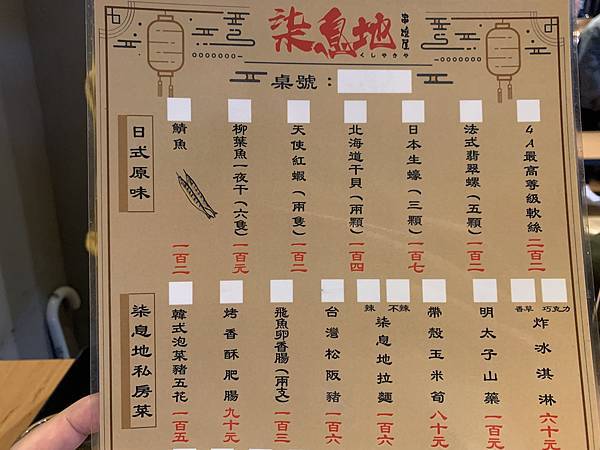 柒息地
串燒屋
くしやきや
桌號：
日式原味
4A最高等級軟絲 二百二
法式翡翠螺（五顆） 一百二
日本生蠔（三顆） 一百七
北海道干貝（兩顆） 一百四
天使紅蝦（兩隻） 一百二
柳葉魚一夜干（六隻） 一百元
鯖魚 一百二
柒息地私房菜
香草 巧克力
炸冰淇淋 六十元
明太子山藥 一百元
帶殼玉米筍 八十元
辣 不辣
柒息地拉麵 一百六
台灣松阪豬 一百六
飛魚卵香腸（兩支） 一百三
烤香酥肥腸 九十元
韓式泡菜豬五花 一百五